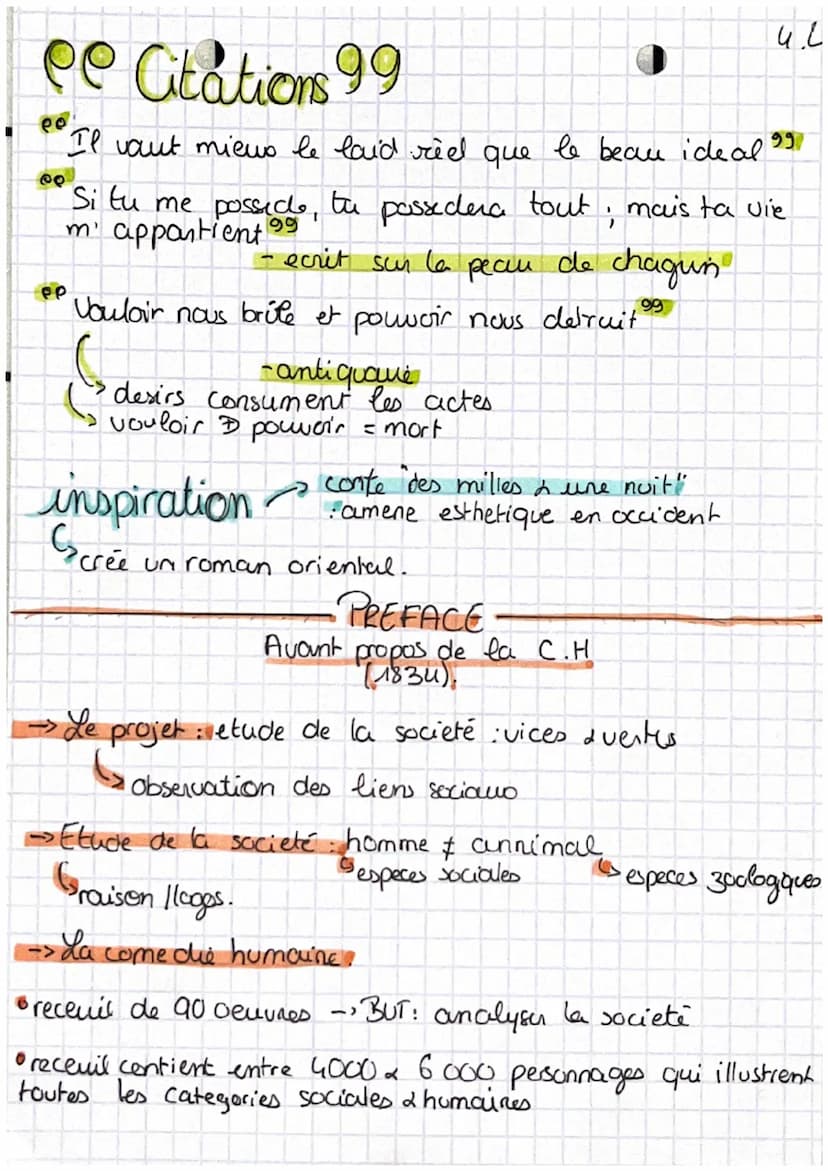 4.L
“ Citations ”
“Il vaut mieux le laid réel que le beau ideal”
“Si tu me possede, tu possedera tout ; mais ta vie
m'appartient”
- ecrit sur la peau de chagrin
“Vouloir nous brûle et pouvoir nous detruit”
- antiquaire
↳ desirs consument les actes
↳ vouloir pouvoir = mort
inspiration → conte "des milles & une nuit"
: amene esthetique en occident
↳ crée un roman oriental.
PREFACE
Avant propos de la C.H
(1834).
→ Le projet : etude de la societé : vices & vertus
↳ Observation des liens sociaux
→ Etude de la societé : homme ≠ annimal
↳ especes sociales ↳ especes zoologiques
↳ raison // logos.
→ La comedie humaine :
• receuil de 90 oeuvres → BUT : analyser la societé
• receuil contient entre 4000 & 6 000 personnages qui illustrent
toutes les categories sociales & humaines